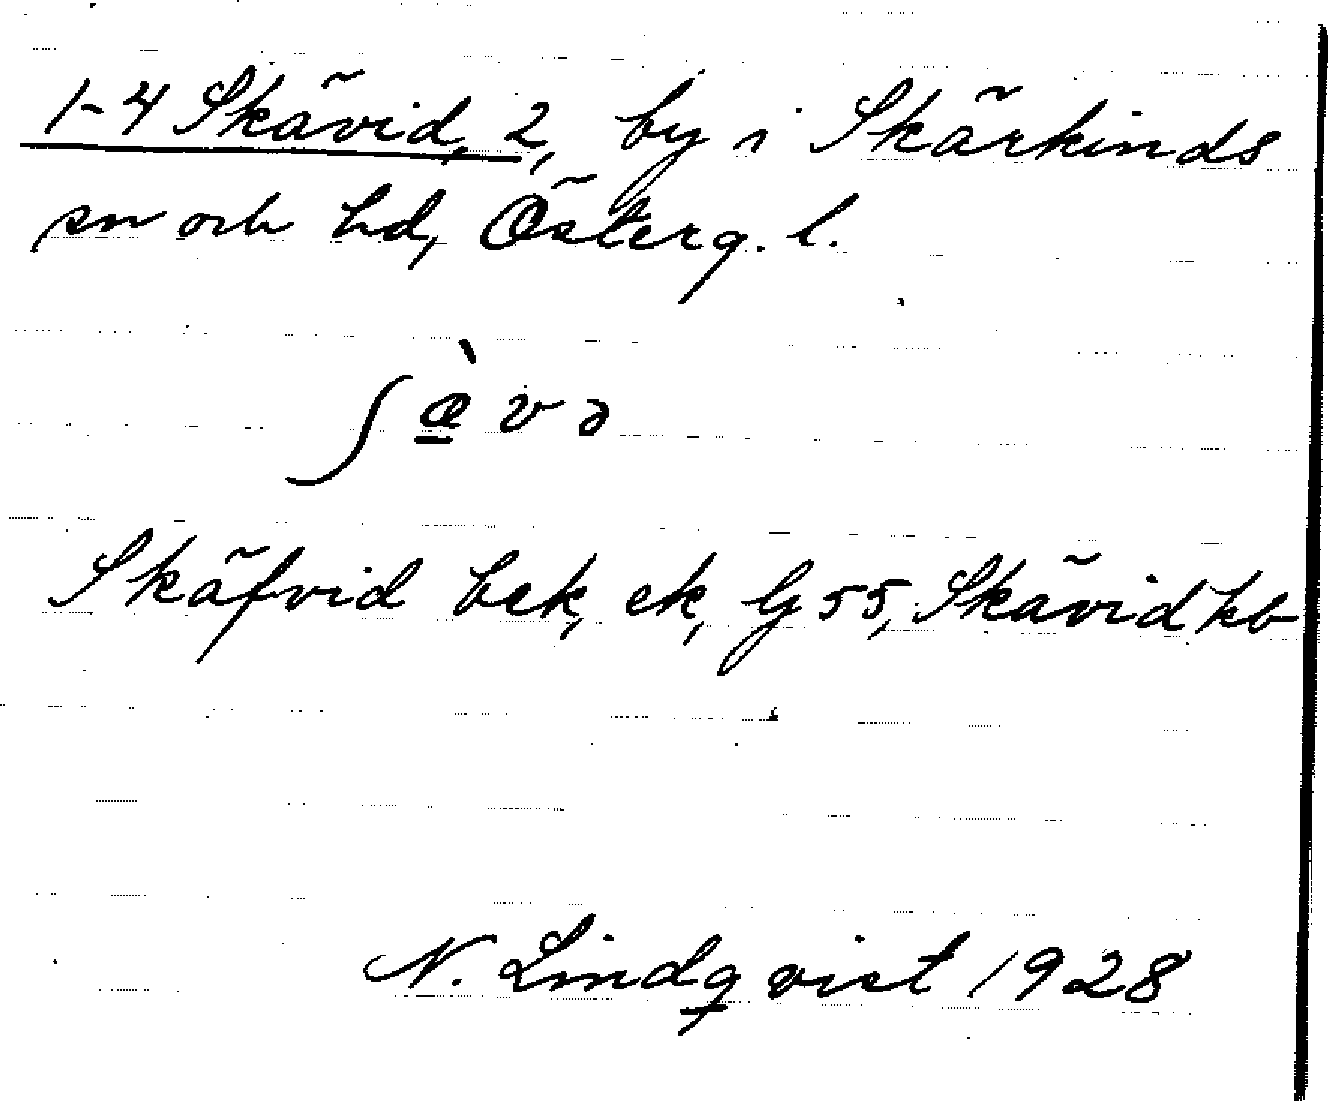 1-4 Skävid, 2, by i Skärkinds
sn och hd, Österg. l.
ʃæ̱̀və
Skäfvid bek, ek, Gj 55, Skävid kb
N. Lindqvist 1928